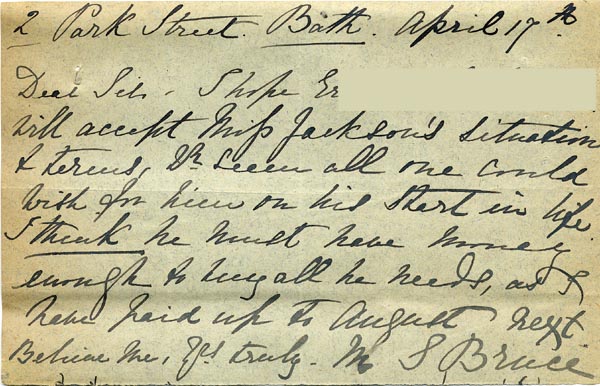 2 Park Street. Bath. April 17th
Dear Sir - I hope Er
will accept Miss Jackson's situation
& terms, It seem all one could
wish for him on his start in life
I think he must have money
enough to buy all he needs, as I
have paid up to August next
Believe me, Yrs truly. M S Bruce